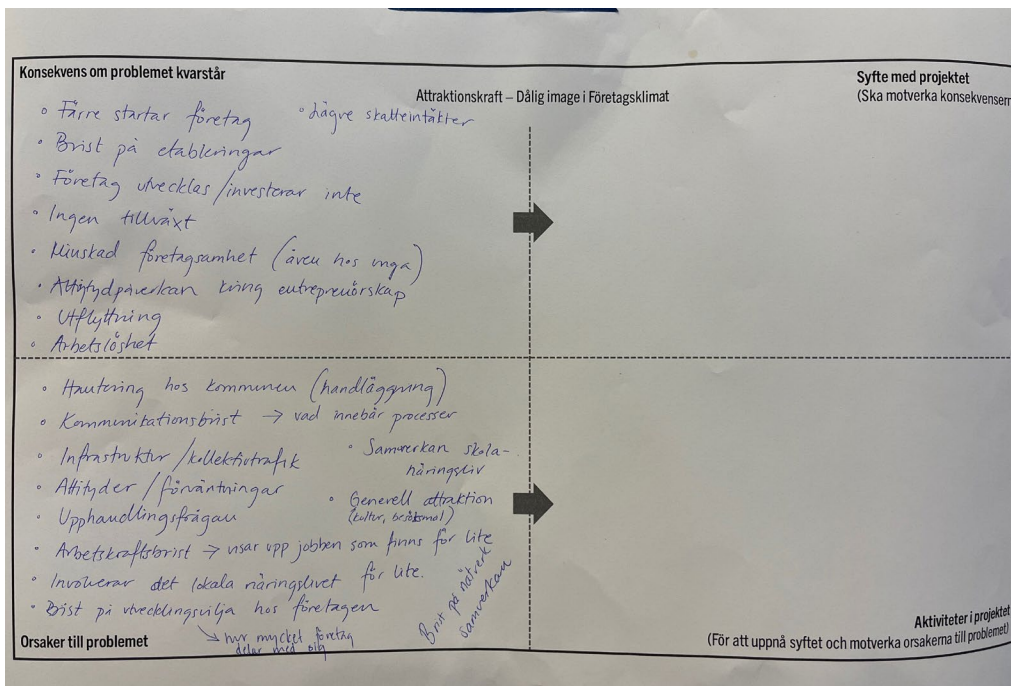 Konsekvens om problemet kvarstår
Attraktionskraft – Dålig image i Företagsklimat
Syfte med projektet
(Ska motverka konsekvensern
• Färre startar företag
• Lägre skatteintäkter
• Brist på etableringar
• Företag utvecklas/investerar inte
• Ingen tillväxt
• Minskad företagsamhet (även hos unga)
• Attitydpåverkan kring entreprenörskap
• Utflyttning
• Arbetslöshet
• Hantering hos kommunen (handläggning)
• Kommunikationsbrist → vad innebär processer
• Infrastruktur/kollektivtrafik
• Samverkan skola-
näringsliv
• Attityder/förväntningar
• Generell attraktion
(kultur, besöksmål)
• Upphandlingsfrågan
• Arbetskraftsbrist → visar upp jobben som finns för lite
• Involverar det lokala näringslivet för lite.
• Brist på utvecklingsvilja hos företagen
↳ hur mycket företag
delar med sig
Brist på nätverk
samverkan
Orsaker till problemet
Aktiviteter i projektet
(För att uppnå syftet och motverka orsakerna till problemet)